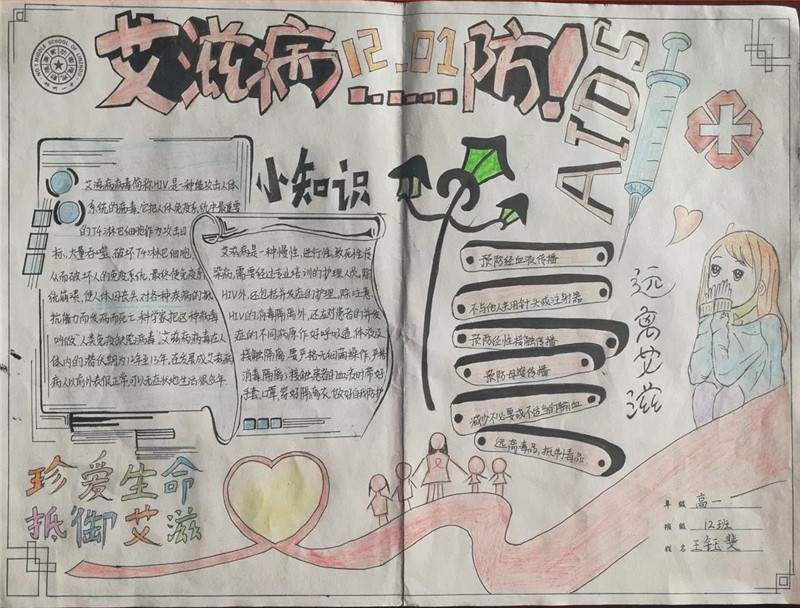 艾滋病12.01防!
AIDS
小知识
艾滋病病毒简称HIV,是一种能攻击人体
系统的病毒,它把人体免疫系统中最重要
的T4淋巴细胞作为攻击目
标,大量吞噬,破坏T4淋巴细胞,
从而破坏人的免疫系统,最终使免疫系
统崩溃,使人体因丧失对各种疾病的抵
抗能力而发病而死亡,科学家把这种病毒
叫做"人类免疫缺陷病毒",艾滋病病毒在人
体内的潜伏期为12年至13年,在发展成艾滋病
病人以前外表很正常,可以无症状地生活很多年
艾滋病是一种慢性,进行性,致死性传
染病,需要经过专业培训的护理人员,除
HIV外,还包括并发症的护理,除注意
HIV的消毒隔离外,还应对患者的并发
症的不同病原作好呼吸道,体液及
接触隔离,要严格无菌操作,严格
消毒隔离;接触患者的血液时带好
手套,口罩,穿好隔离衣,做好自我防护
预防经血液传播
不与他人共用针头或注射器
预防经性接触传播
预防母婴传播
减少不必要或不适当的输血
远离毒品,抵制毒品
远离艾滋
珍爱生命
抵御艾滋
年级 高一
班级 12班
姓名 王